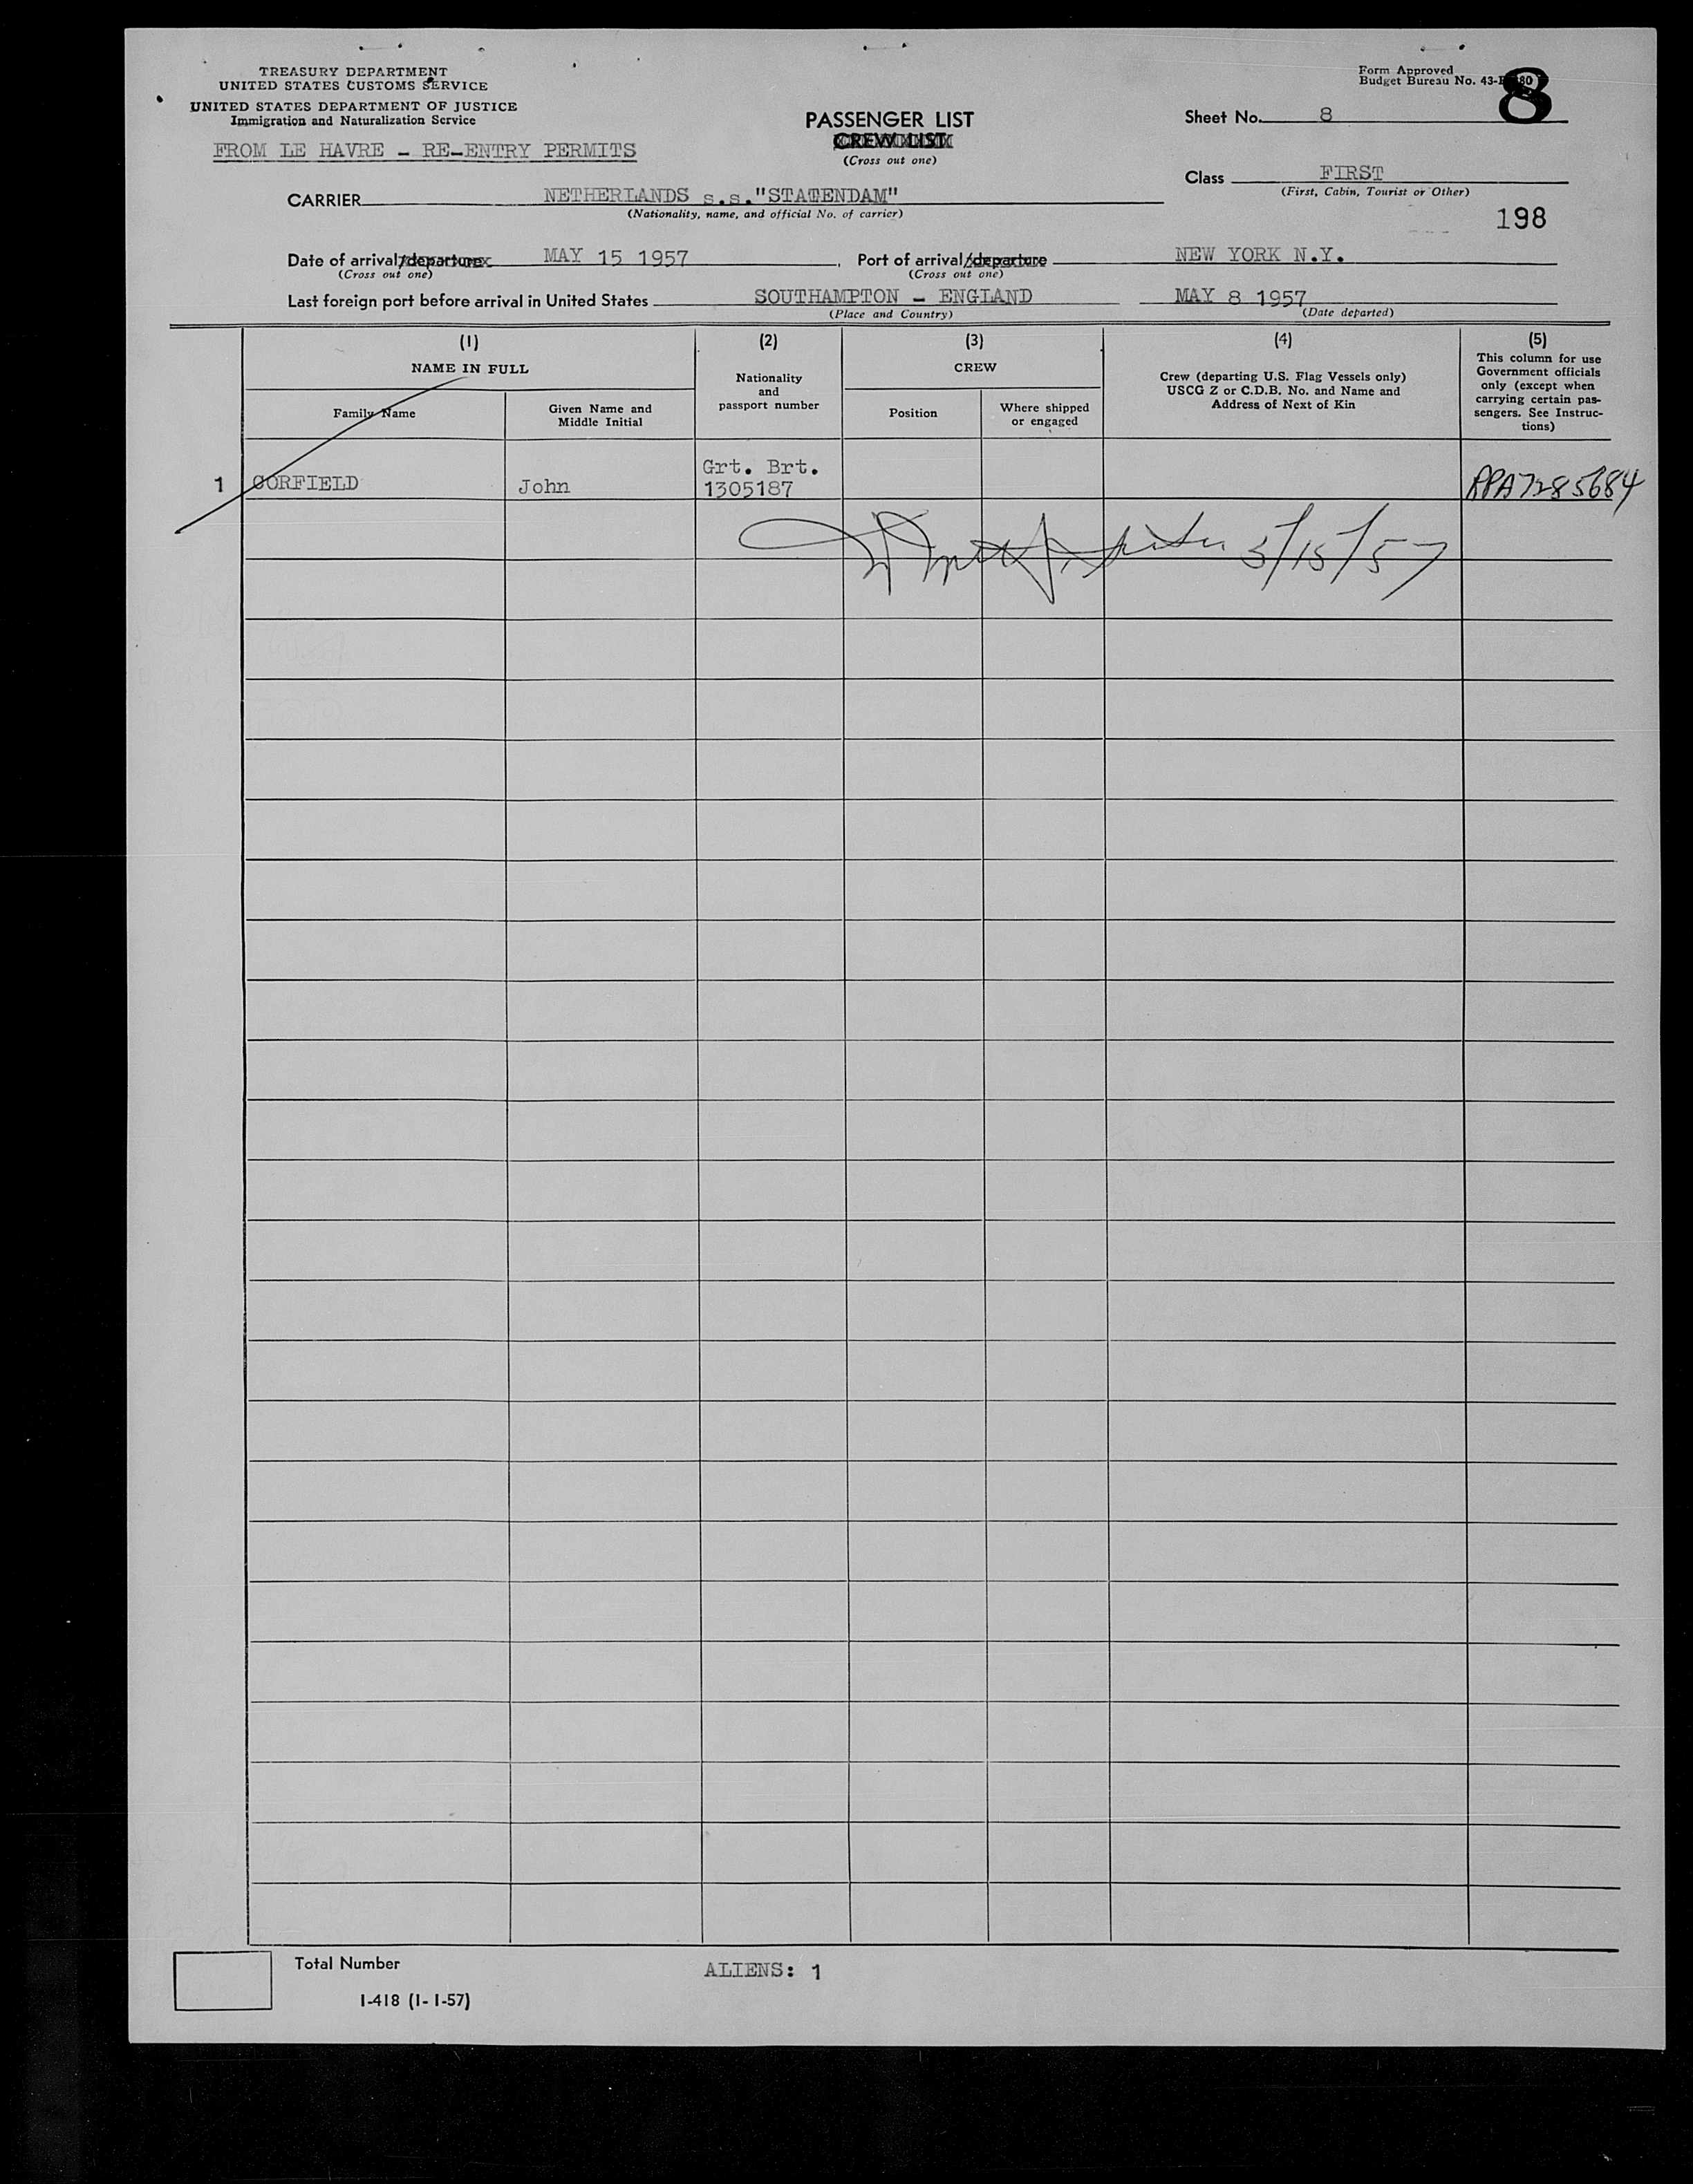 TREASURY DEPARTMENT
UNITED STATES CUSTOMS SERVICE
UNITED STATES DEPARTMENT OF JUSTICE
Immigration and Naturalization Service
FROM LE HAVRE - RE-ENTRY PERMITS
PASSENGER LIST
CREW LIST
(Cross out one)
Form Approved
Budget Bureau No. 43-
8
Sheet No. 8
Class FIRST
(First, Cabin, Tourist or Other)
198
CARRIER NETHERLANDS s.s."STATENDAM"
(Nationality, name, and official No. of carrier)
Date of arrival/departure MAY 15 1957, Port of arrival/departure NEW YORK N.Y.
(Cross out one) (Cross out one)
Last foreign port before arrival in United States SOUTHAMPTON - ENGLAND MAY 8 1957
(Place and Country) (Date departed)
(1) (2) (3) (4) (5)
NAME IN FULL
Family Name
Given Name and
Middle Initial
Nationality
and
passport number
CREW
Position
Where shipped
or engaged
Crew (departing U.S. Flag Vessels only)
USCG Z or C.D.B. No. and Name and
Address of Next of Kin
This column for use
Government officials
only (except when
carrying certain pas-
sengers. See Instruc-
tions)
Grt. Brt.
1 CORFIELD John 1305187 RPA7285684
5/15/57
Total Number ALIENS: 1
I-418 (1-1-57)